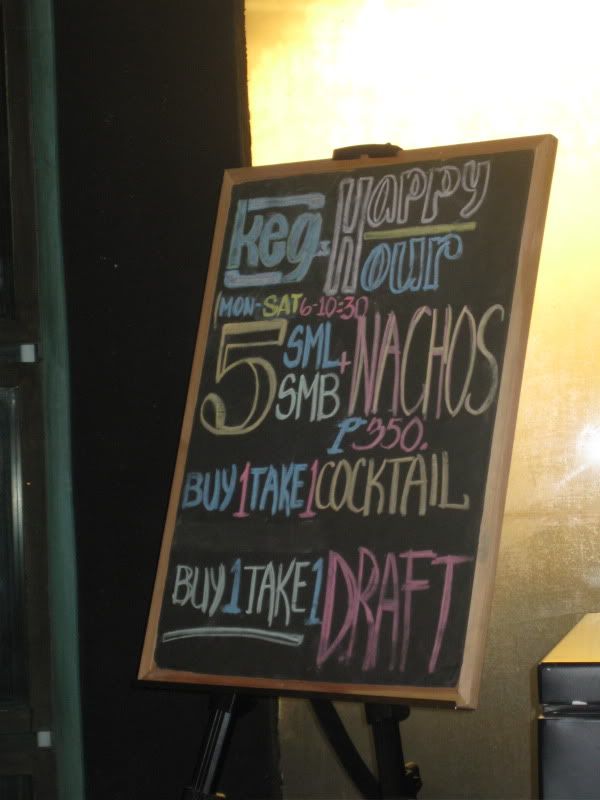 Keg Happy
Hour
MON-SAT 6-10:30
5 SML + NACHOS
SMB
₱350.
BUY 1 TAKE 1 COCKTAIL
BUY 1 TAKE 1 DRAFT